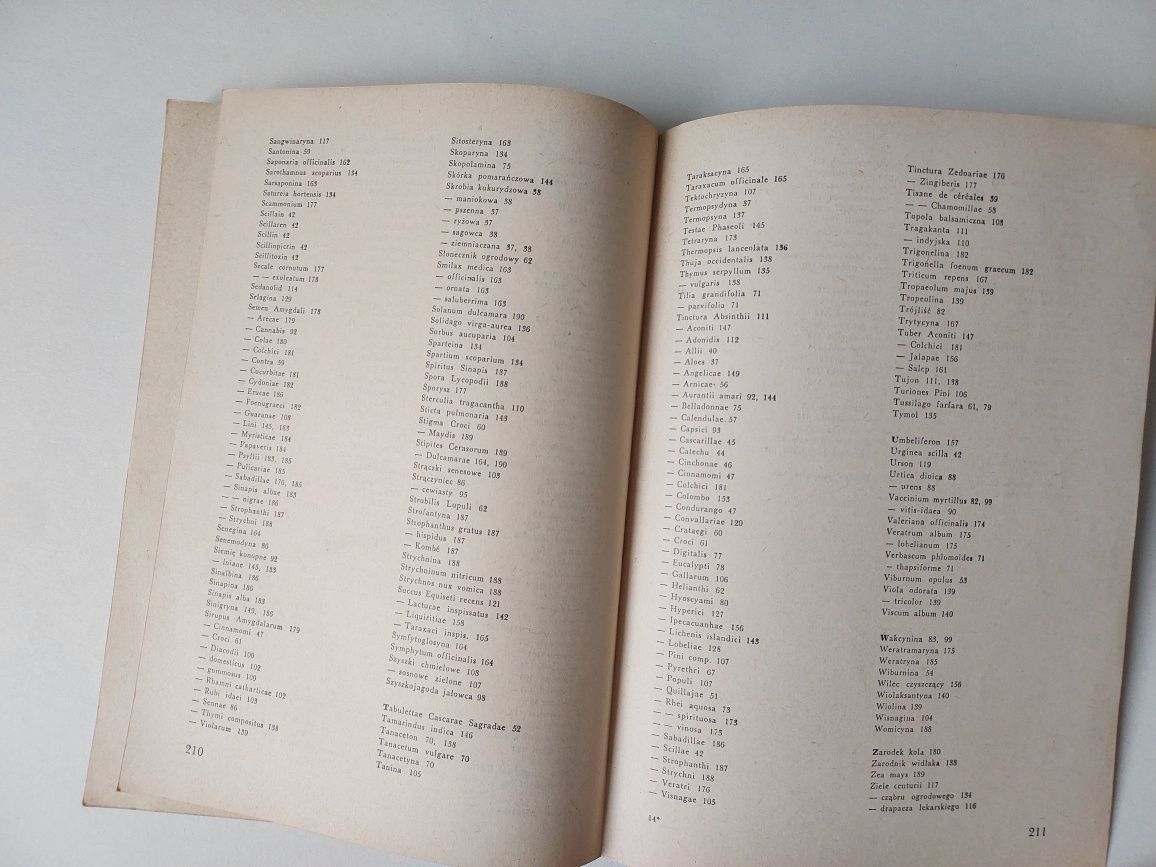 Sangwinaryna 117
Santonina 59
Saponaria officinalis 162
Sarothamnus scoparius 134
Sarsaponina 163
Satureia hortensis 134
Scammonium 177
Scillain 42
Scillaren 42
Scillin 42
Scillinpicrin 42
Scillitoxin 42
Secale cornutum 177
— — exoleatum 178
Sedanolid 114
Selagina 129
Semen Amygdali 178
— Arecae 179
— Cannabis 92
— Colae 180
— Colchici 181
— Contra 59
— Cucurbitae 181
— Cydoniae 182
— Erucae 186
— Foenugraeci 182
— Guaranae 108
— Lini 145, 183
— Myristicae 184
— Papaveris 184
— Psyllii 183, 185
— Pulicariae 185
— Sabadillae 176, 185
— Sinapis albae 183
— — nigrae 186
— Strophanthi 187
— Strychni 188
Senegina 164
Senemodyna 86
Siemię konopne 92
— lniane 145, 183
Sinalbina 186
Sinapina 186
Sinapis alba 183
Sinigryna 149, 186
Sirupus Amygdalarum 179
— Cinnamomi 47
— Croci 61
— Diacodii 100
— domesticus 102
— gummosus 109
— Rhamni catharticae 102
— Rubi idaei 103
— Sennae 86
— Thymi compositus 138
— Violarum 139
210
Sitosteryna 163
Skoparyna 134
Skopolamina 75
Skórka pomarańczowa 144
Skrobia kukurydzowa 38
— maniokowa 38
— pszenna 37
— ryżowa 37
— sagowca 38
— ziemniaczana 37, 38
Słonecznik ogrodowy 62
Smilax medica 163
— officinalis 163
— ornata 163
— saluberrima 163
Solanum dulcamara 190
Solidago virga-aurea 136
Sorbus aucuparia 104
Sparteina 134
Spartium scoparium 134
Spiritus Sinapis 187
Spora Lycopodii 188
Sporysz 177
Sterculia tragacantha 110
Sticta pulmonaria 143
Stigma Croci 60
— Maydis 189
Stipites Cerasorum 189
— Dulcamarae 164, 190
Strączki senesowe 103
Strączyniec 86
— cewiasty 95
Strobilis Lupuli 62
Strofantyna 187
Strophanthus gratus 187
— hispidus 187
— Kombé 187
Strychnina 188
Strychninum nitricum 188
Strychnos nux vomica 188
Succus Equiseti recens 121
— Lactucae inspissatus 142
— Liquiritiae 158
— Taraxaci inspis. 165
Symfytoglosyna 164
Symphytum officinalis 164
Szyszki chmielowe 108
— sosnowe zielone 107
Szyszkojagoda jałowca 98
Tabulettae Cascarae Sagradae 52
Tamarindus indica 146
Tanaceton 70, 138
Tanacetum vulgare 70
Tanacetyna 70
Tanina 105
Taraksacyna 165
Taraxacum officinale 165
Tektochryzyna 107
Termopsydyna 37
Termopsyna 137
Testae Phaseoli 145
Tetraryna 173
Thermopsis lanceolata 136
Thuja occidentalis 138
Thymus serpyllum 135
— vulgaris 138
Tilia grandifolia 71
— parvifolia 71
Tinctura Absinthii 111
— Aconiti 147
— Adonidis 112
— Allii 40
— Aloes 37
— Angelicae 149
— Arnicae 56
— Aurantii amari 92, 144
— Belladonnae 75
— Calendulae 57
— Capsici 93
— Cascarillae 45
— Catechu 44
— Cinchonae 46
— Cinnamomi 47
— Colchici 181
— Colombo 153
— Condurango 47
— Convallariae 120
— Crataegi 60
— Croci 61
— Digitalis 77
— Eucalypti 78
— Gallarum 106
— Helianthi 62
— Hyoscyami 80
— Hyperici 127
— Ipecacuanhae 156
— Lichenis islandici 143
— Lobeliae 128
— Pini comp. 107
— Pyrethri 67
— Populi 107
— Quillajae 51
— Rhei aquosa 73
— — spirituosa 173
— — vinosa 173
— Sabadillae 186
— Scillae 42
— Strophanthi 187
— Strychni 188
— Veratri 176
— Visnagae 105
14*
Tinctura Zedoariae 176
— Zingiberis 177
Tisane de céréales 39
— — Chamomillae 58
Topola balsamiczna 108
Tragakanta 111
— indyjska 110
Trigonelina 182
Trigonella foenum graecum 182
Triticum repens 167
Tropaeolum majus 139
Tropeolina 139
Trójliść 82
Trytycyna 167
Tuber Aconiti 147
— Colchici 181
— Jalapae 156
— Salep 161
Tujon 111, 138
Turiones Pini 106
Tussilago farfara 61, 79
Tymol 135
Umbeliferon 157
Urginea scilla 42
Urson 119
Urtica dioica 88
— urens 88
Vaccinium myrtillus 82, 99
— vitis-idaea 90
Valeriana officinalis 174
Veratrum album 175
— lobelianum 175
Verbascum phlomoides 71
— thapsiforme 71
Viburnum opulus 53
Viola odorata 139
— tricolor 139
Viscum album 140
Wakcynina 83, 99
Weratramaryna 175
Weratryna 185
Wiburnina 54
Wilec czyszczący 156
Wiolaksantyna 140
Wiolina 139
Wisnagina 104
Womicyna 188
Zarodek kola 180
Zarodnik widłaka 188
Zea mays 189
Ziele centurii 117
— cząbru ogrodowego 134
— drapacza lekarskiego 116
211